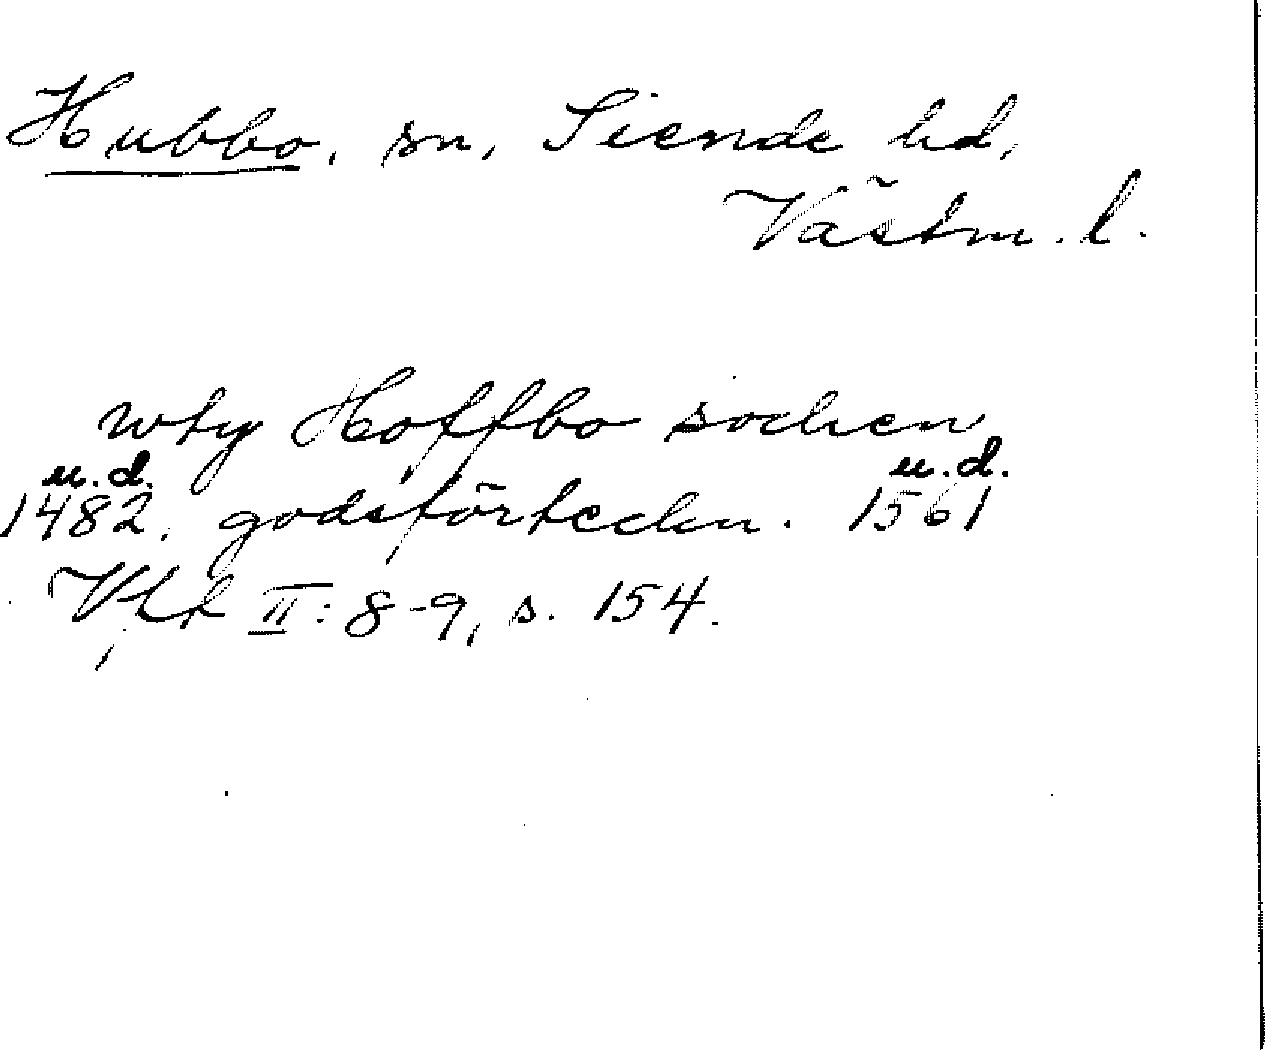 Hubbo, sn, Siende hd,
Västm. l.
wty Hoffbo sochen
u.d. u.d.
1482, godsförteckn. 1561
II: 8-9, s. 154.